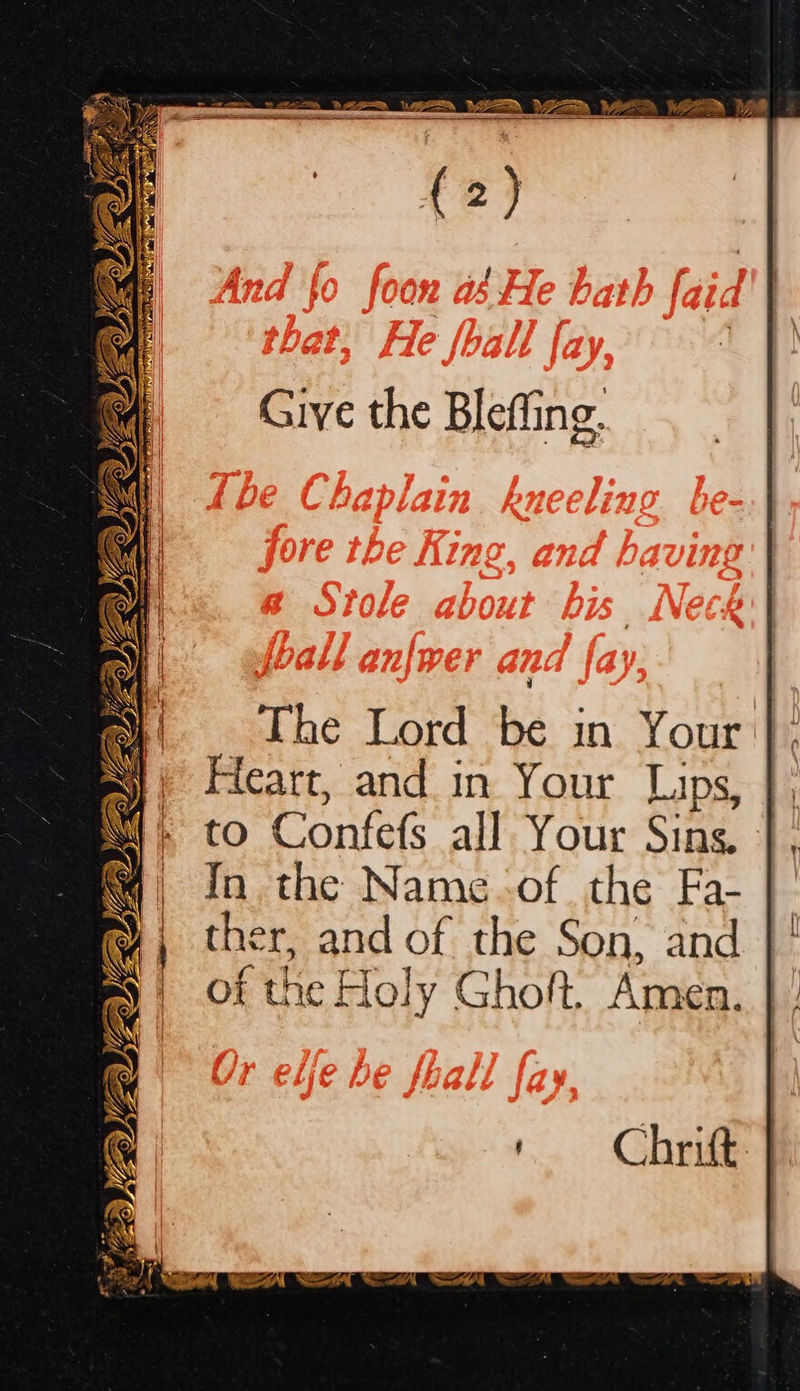 (2)
And ſo ſoon as He hath ſaid
that, He ſhall ſay,
Give the Bleſſing.
The Chaplain kneeling be-
fore the King, and having
a Stole about his Neck
ſhall anſwer and ſay,
The Lord be in Your
Heart, and in Your Lips,
to Confeſs all Your Sins.
In the Name of the Fa-
ther, and of the Son, and
of the Holy Ghoſt. Amen.
Or elſe he ſhall ſay,
Chriſt